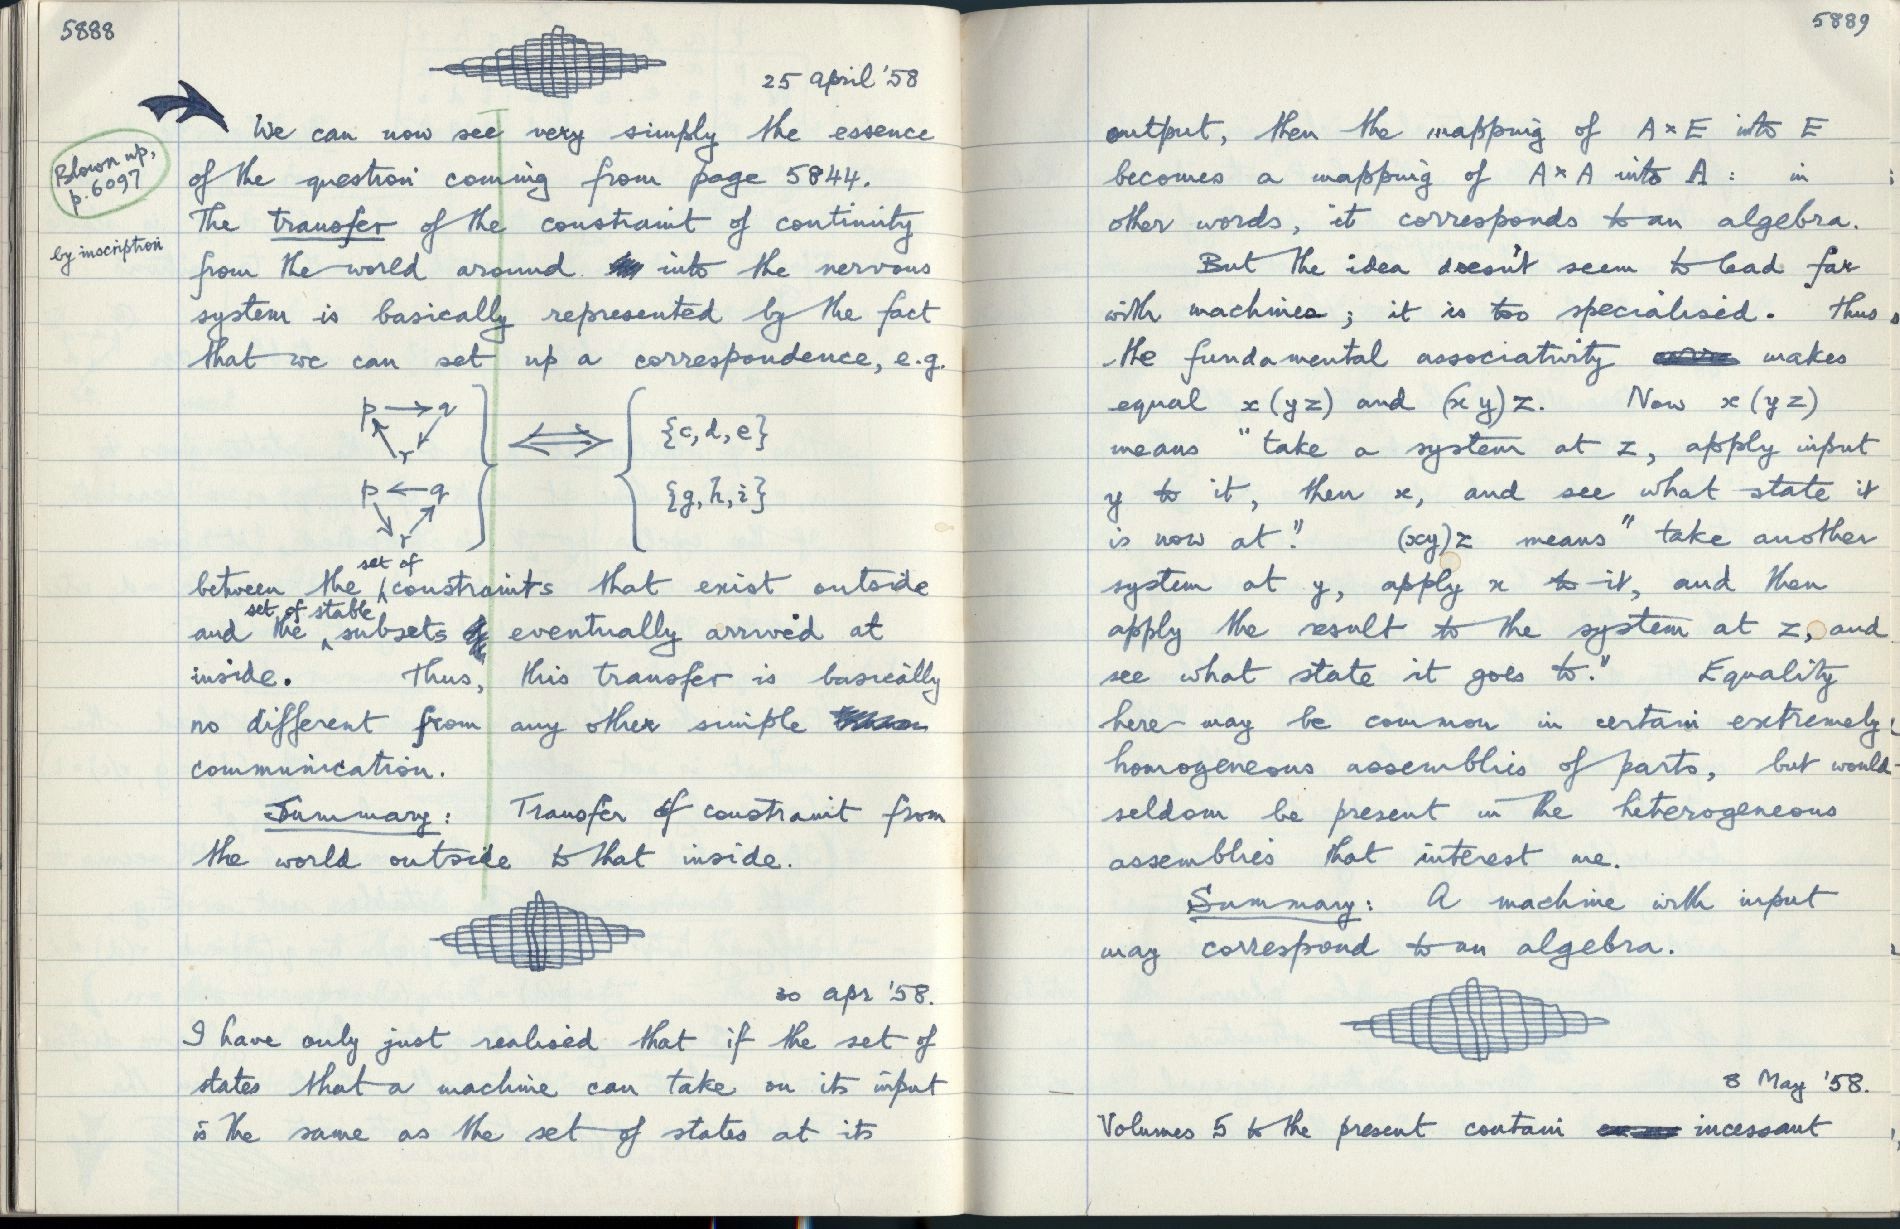 5888
25 April '58
We can now see very simply the essence
Blown up,
p. 6097
of the question coming from page 5844.
The transfer of the constraint of continuity
by inscription
from the world around into the nervous
system is basically represented by the fact
that we can set up a correspondence, e.g.
p → q
r
{c, d, e}
⇔
p ← q
r
{g, h, i}
set of
between the constraints that exist outside
set of stable
and the subsets eventually arrived at
inside. Thus, this transfer is basically
no different from any other simple
communication.
Summary: Transfer of constraint from
the world outside to that inside.
30 Apr '58.
I have only just realised that if the set of
states that a machine can take on its input
is the same as the set of states at its
5889
output, then the mapping of A × E into E
becomes a mapping of A × A into A : in
other words, it corresponds to an algebra.
But the idea doesn't seem to lead far
with machines ; it is too specialised. Thus
the fundamental associativity makes
equal x(yz) and (xy)z. Now x(yz)
means "take a system at z, apply input
y to it, then x, and see what state it
is now at." (xy)z means "take another
system at y, apply x to it, and then
apply the result to the system at z, and
see what state it goes to." Equality
here may be common in certain extremely
homogeneous assemblies of parts, but would
seldom be present in the heterogeneous
assemblies that interest me.
Summary: A machine with input
may correspond to an algebra.
8 May '58.
Volumes 5 to the present contain incessant